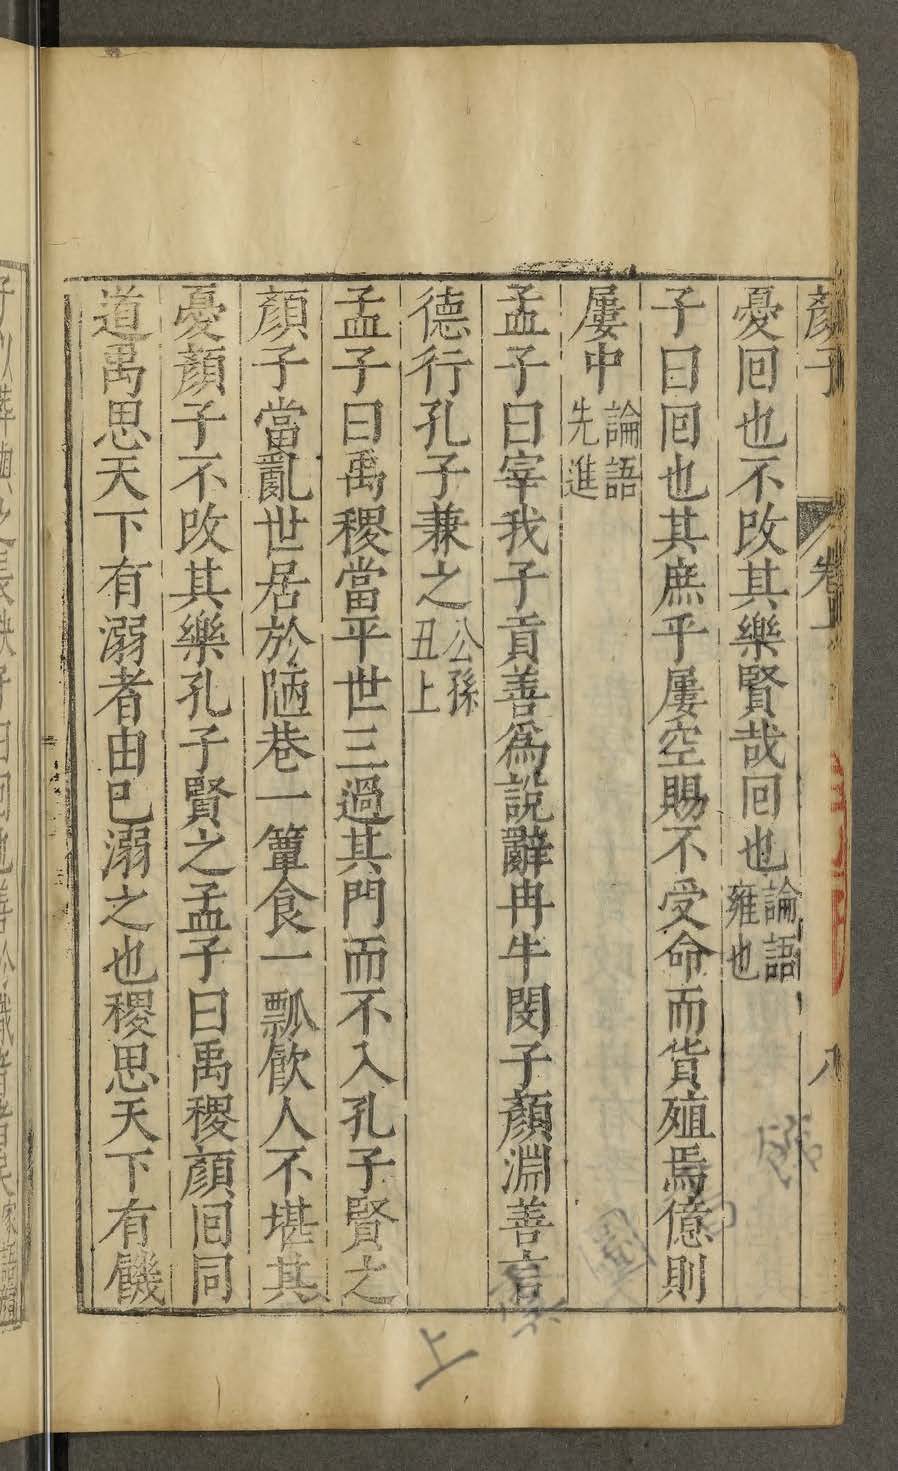 顔子 卷上 八
憂回也不改其樂賢哉回也論語雍也
子曰回也其庶乎屢空賜不受命而貨殖焉億則
屢中論語先進
孟子曰宰我子貢善爲說辭冉牛閔子顔淵善言
德行孔子兼之公孫丑上
孟子曰禹稷當平世三過其門而不入孔子賢之
顔子當亂世居於陋巷一簞食一瓢飮人不堪其
憂顔子不改其樂孔子賢之孟子曰禹稷顔回同
道禹思天下有溺者由已溺之也稷思天下有饑
上